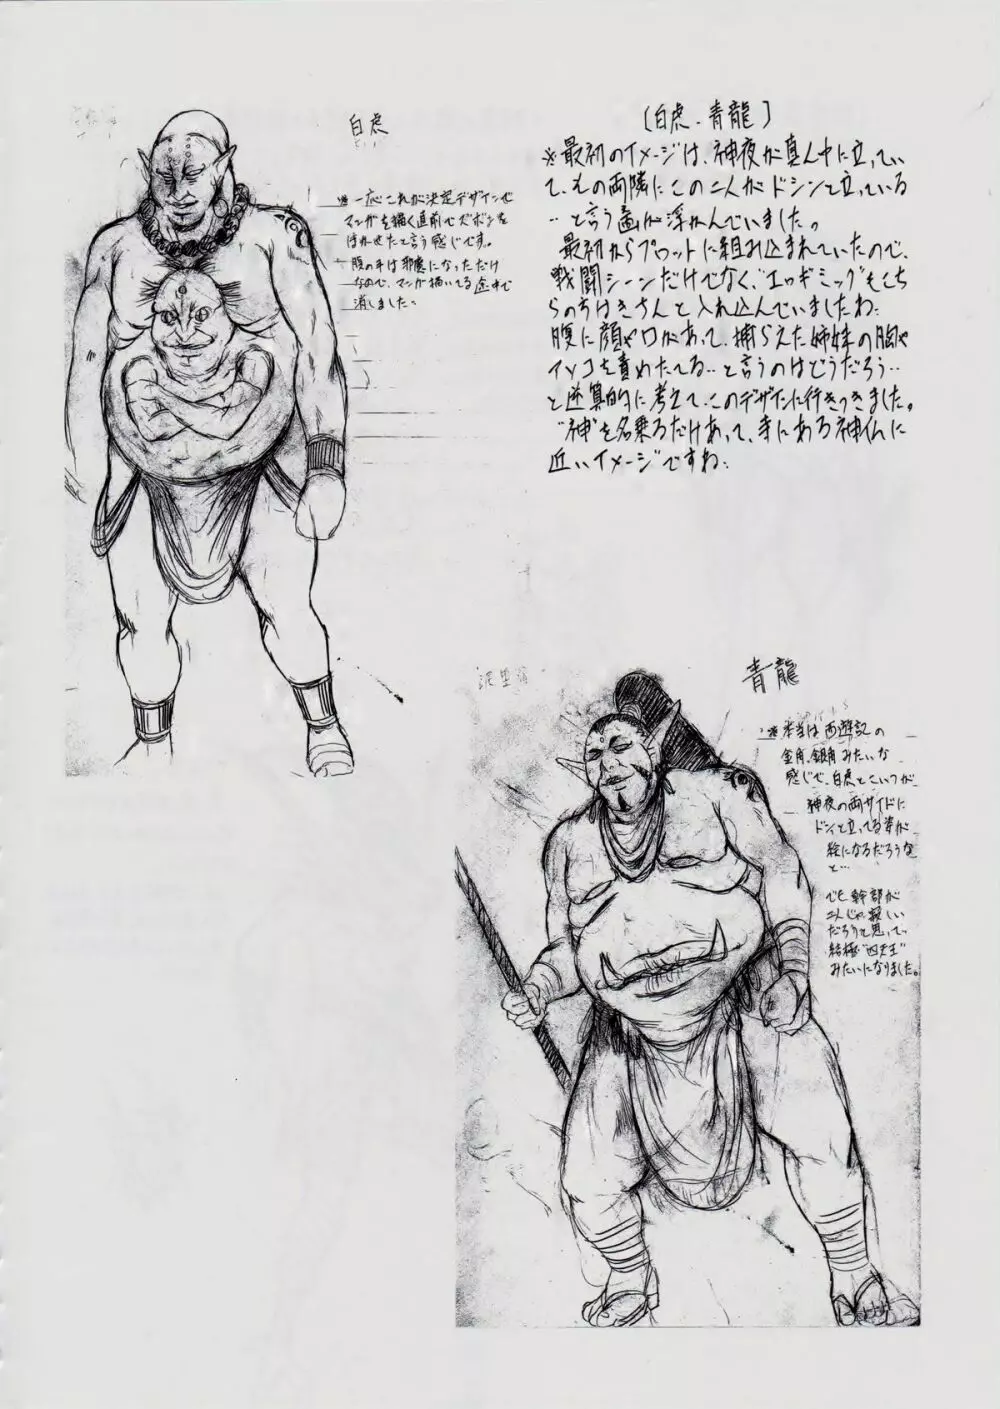 白虎
※一応これが決定デザインで
マンガを描く直前でズボンを
はかせたと言う感じです。
腹の手は邪魔になっただけ
なので、マンガ描いてる途中で
消しました。
〔白虎・青龍〕
※最初のイメージは、神夜が真ん中に立ってい
て、その両隣にこの二人がドシンと立っている
…と言う画が浮かんでいました。
最初からプロットに組み込まれていたので、
戦闘シーンだけでなく、"エロギミック"もこち
らのちはきさんと入れ込んでいましたね。
腹に顔や口があって、捕らえた姉妹の胸や
アソコを責めたてる…と言うのはどうだろう…
と逆算的に考えて、このデザインに行きつきました。
"神"を名乗るだけあって、寺にある神仏に
近いイメージですね。
青龍
※本当は西遊記の
金角、銀角みたいな
感じで、白虎とこいつが
神夜の両サイドに
ドンと立ってる姿が
絵になるだろうな
と…
でも幹部が
二人じゃ寂しい
だろうと思って、
結極"四天王"
みたいになりました。